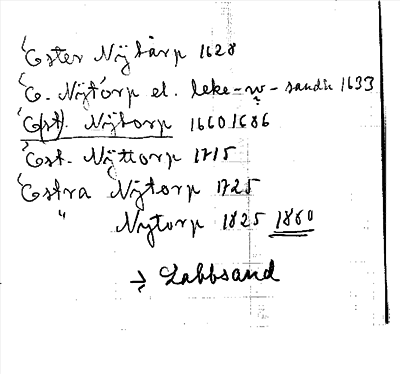 Ester Nijtårp 1628
E. Nijtorp el. leke-w-sandh 1633
E(st). Nijtorp 1660 1686
Est. Nijttorp 1715
Estra Nijtorp 1725
" Nytorp 1825 1860
→ Labbsand